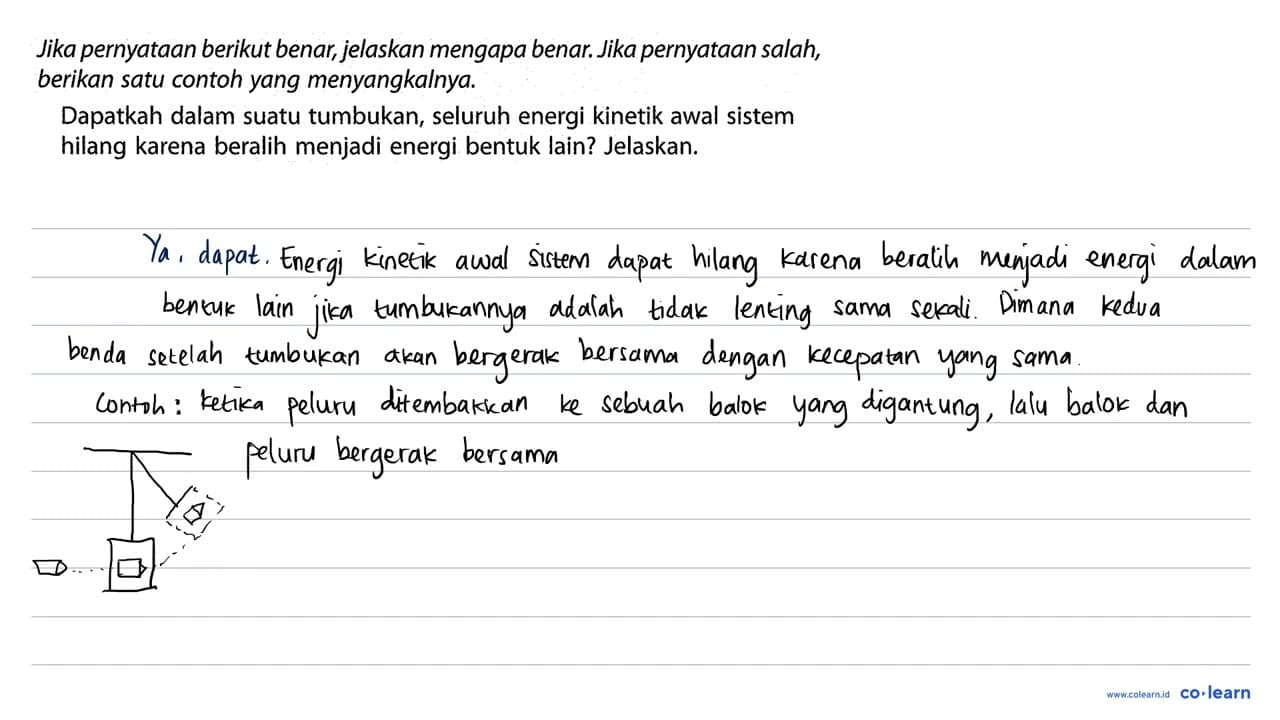 Jika pernyataan berikut benar, jelaskan mengapa benar. Jika pernyataan salah,
berikan satu contoh yang menyangkalnya.
Dapatkah dalam suatu tumbukan, seluruh energi kinetik awal sistem
hilang karena beralih menjadi energi bentuk lain? Jelaskan.
Ya, dapat. Energi kinetik awal sistem dapat hilang karena beralih menjadi energi dalam
bentuk lain jika tumbukannya adalah tidak lenting sama sekali. Dimana kedua
benda setelah tumbukan akan bergerak bersama dengan kecepatan yang sama.
Contoh: ketika peluru ditembakkan ke sebuah balok yang digantung, lalu balok dan
peluru bergerak bersama
www.colearn.id co·learn